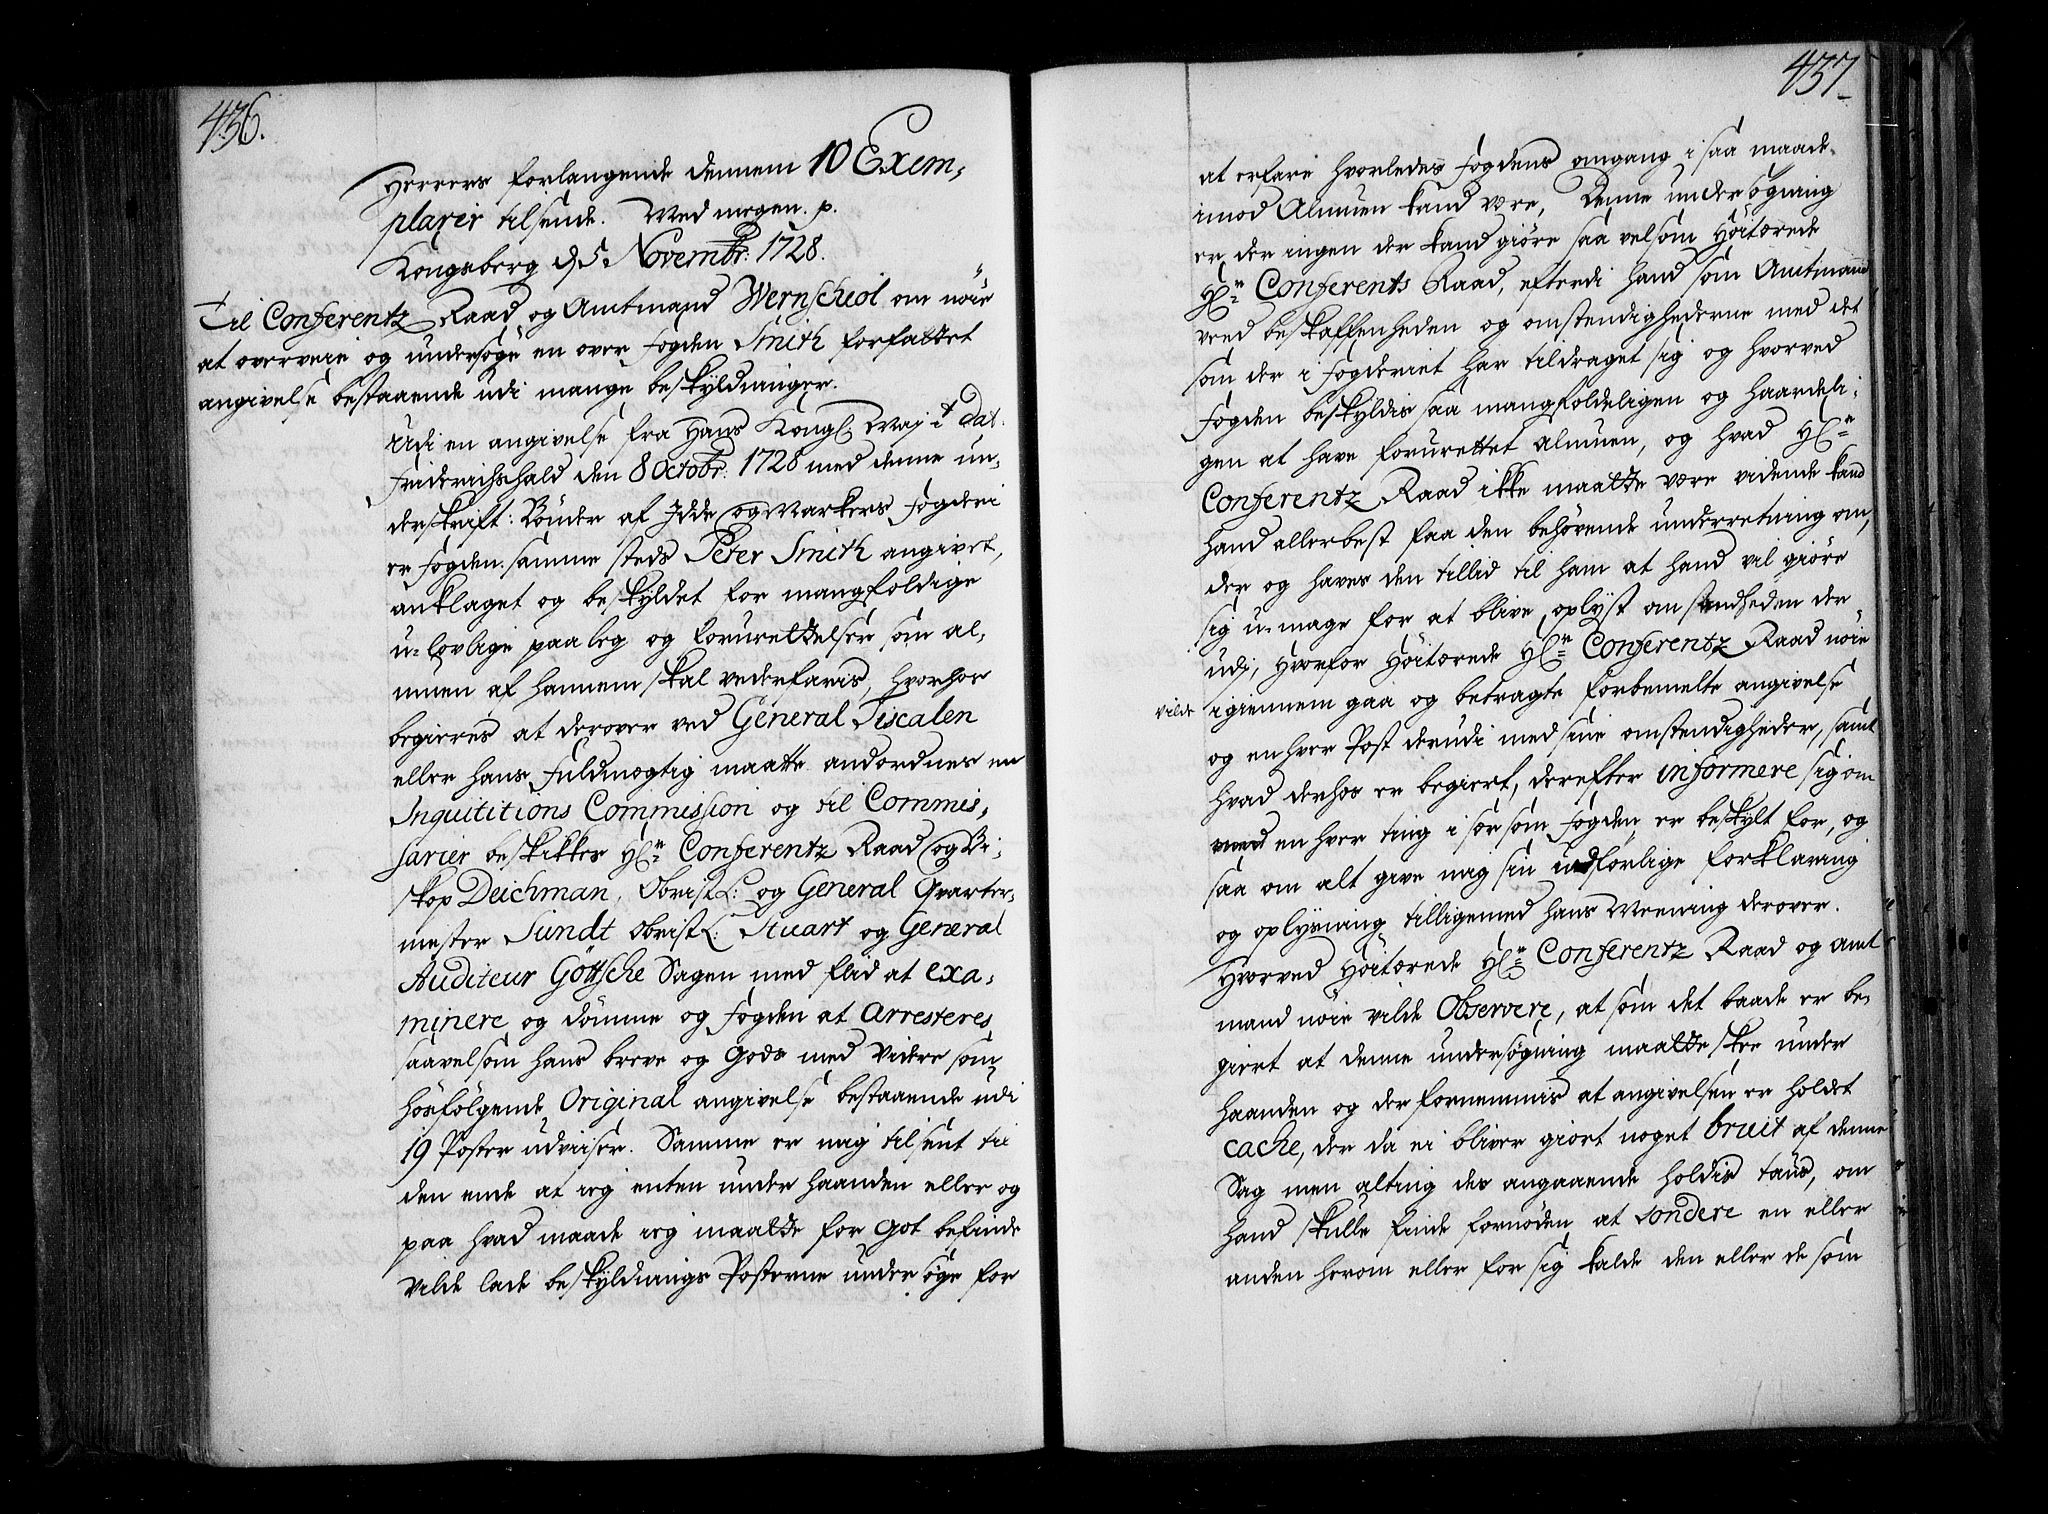 436.
Herrers forlangende dennem 10 Exem,
plarer tilsende. Med megen. p.
Kongsberg d 5. Novembr: 1728.
Til Conferentz Raad og Amtmand Wernschiol om nöie
at overveie og undersöge en over fogden Smith forfattet
angivelse bestaaende udi mange beskyldninger.
Udi en angivelse fra Hans Kongl Maj t dat.
Friderichshald den 8 Octobr: 1728 med denne un,
derskrift: Bönder af Idde og Markers fogderi
er fogden samme steds Peter Smith angivet,
anklaget og beskyldet for mangfoldige
u-lovlige paaleg og forurettelser som al,
muen af hannem skal vederfaris, hvorhos
begieres at derover ved General Fiscalen
eller hans fuldmegtig maatte andordnes en
Inquititions Commission og til Commis,
sarier beskikkes Hl:n Conferentz Raad og Bi,
skop Deichman, Obrist L: og General Qvarter,
mester Sundt Obrist L: Stuart og General
Auditeur Göttsche Sagen med flid at exa,
minere og dömme og fogden at Arresteres,
saavelsom hans breve og Gods med videre som
hosfölgende Original angivelse bestaaende udi
19 Poster udviiser. Samme er mig tilsent til
den ende at ieg enten under haanden eller og
paa hvad maade ieg maatte for got befinde
vilde lade beskyldnings Posterne undersöge for
437
at erfare hvorledes fogdens omgang i saa maade,
imod Almuen kand være, Denne undersögning
er der ingen der kand giöre saa velsom Höitærede
Hl:n Conferents Raad, efterdi hand som Amtmand
veed beskaffenheden og omstendighederne med det
som der i fogderiet har tildraget sig og hvorved
fogden beskyldis saa mangfoldeligen og haardeli,
gen at have forurettet almuen, og hvad Hl:n
Conferentz Raad ikke maatte være vidende kand
hand allerbest faa den behövende underretning om,
der og haves den tillid til ham at hand vil giöre
sig u-mage for at blive oplyst om sandheden der
udi, Hvorfor Höitærede Hl:n Conferentz Raad nöie
vilde igiennem gaa og betragte forbemelte angivelse
og en hver Post derudi med sine omstendigheder, samt
hvad derhos er begiert, derefter informere sig om
med en hver ting i sær som fogden er beskylt for, og
saa om alt give mig sin udförlige forklaring
og oplysning tilligemed hans Meening derover.
Hvorved Höitærede Hl:n Conferentz Raad og Amt
mand nöie vilde Observere, at som det baade er be,
giert at denne undersögning maatte skee under
haanden og der fornemmis at angivelsen er holdet
cache, der da ei bliver giort noget bruit af denne
Sag men alting des angaaende holdis taus, om
hand skulle finde fornöden at Sondere en eller
anden herom eller for sig kalde den eller de som